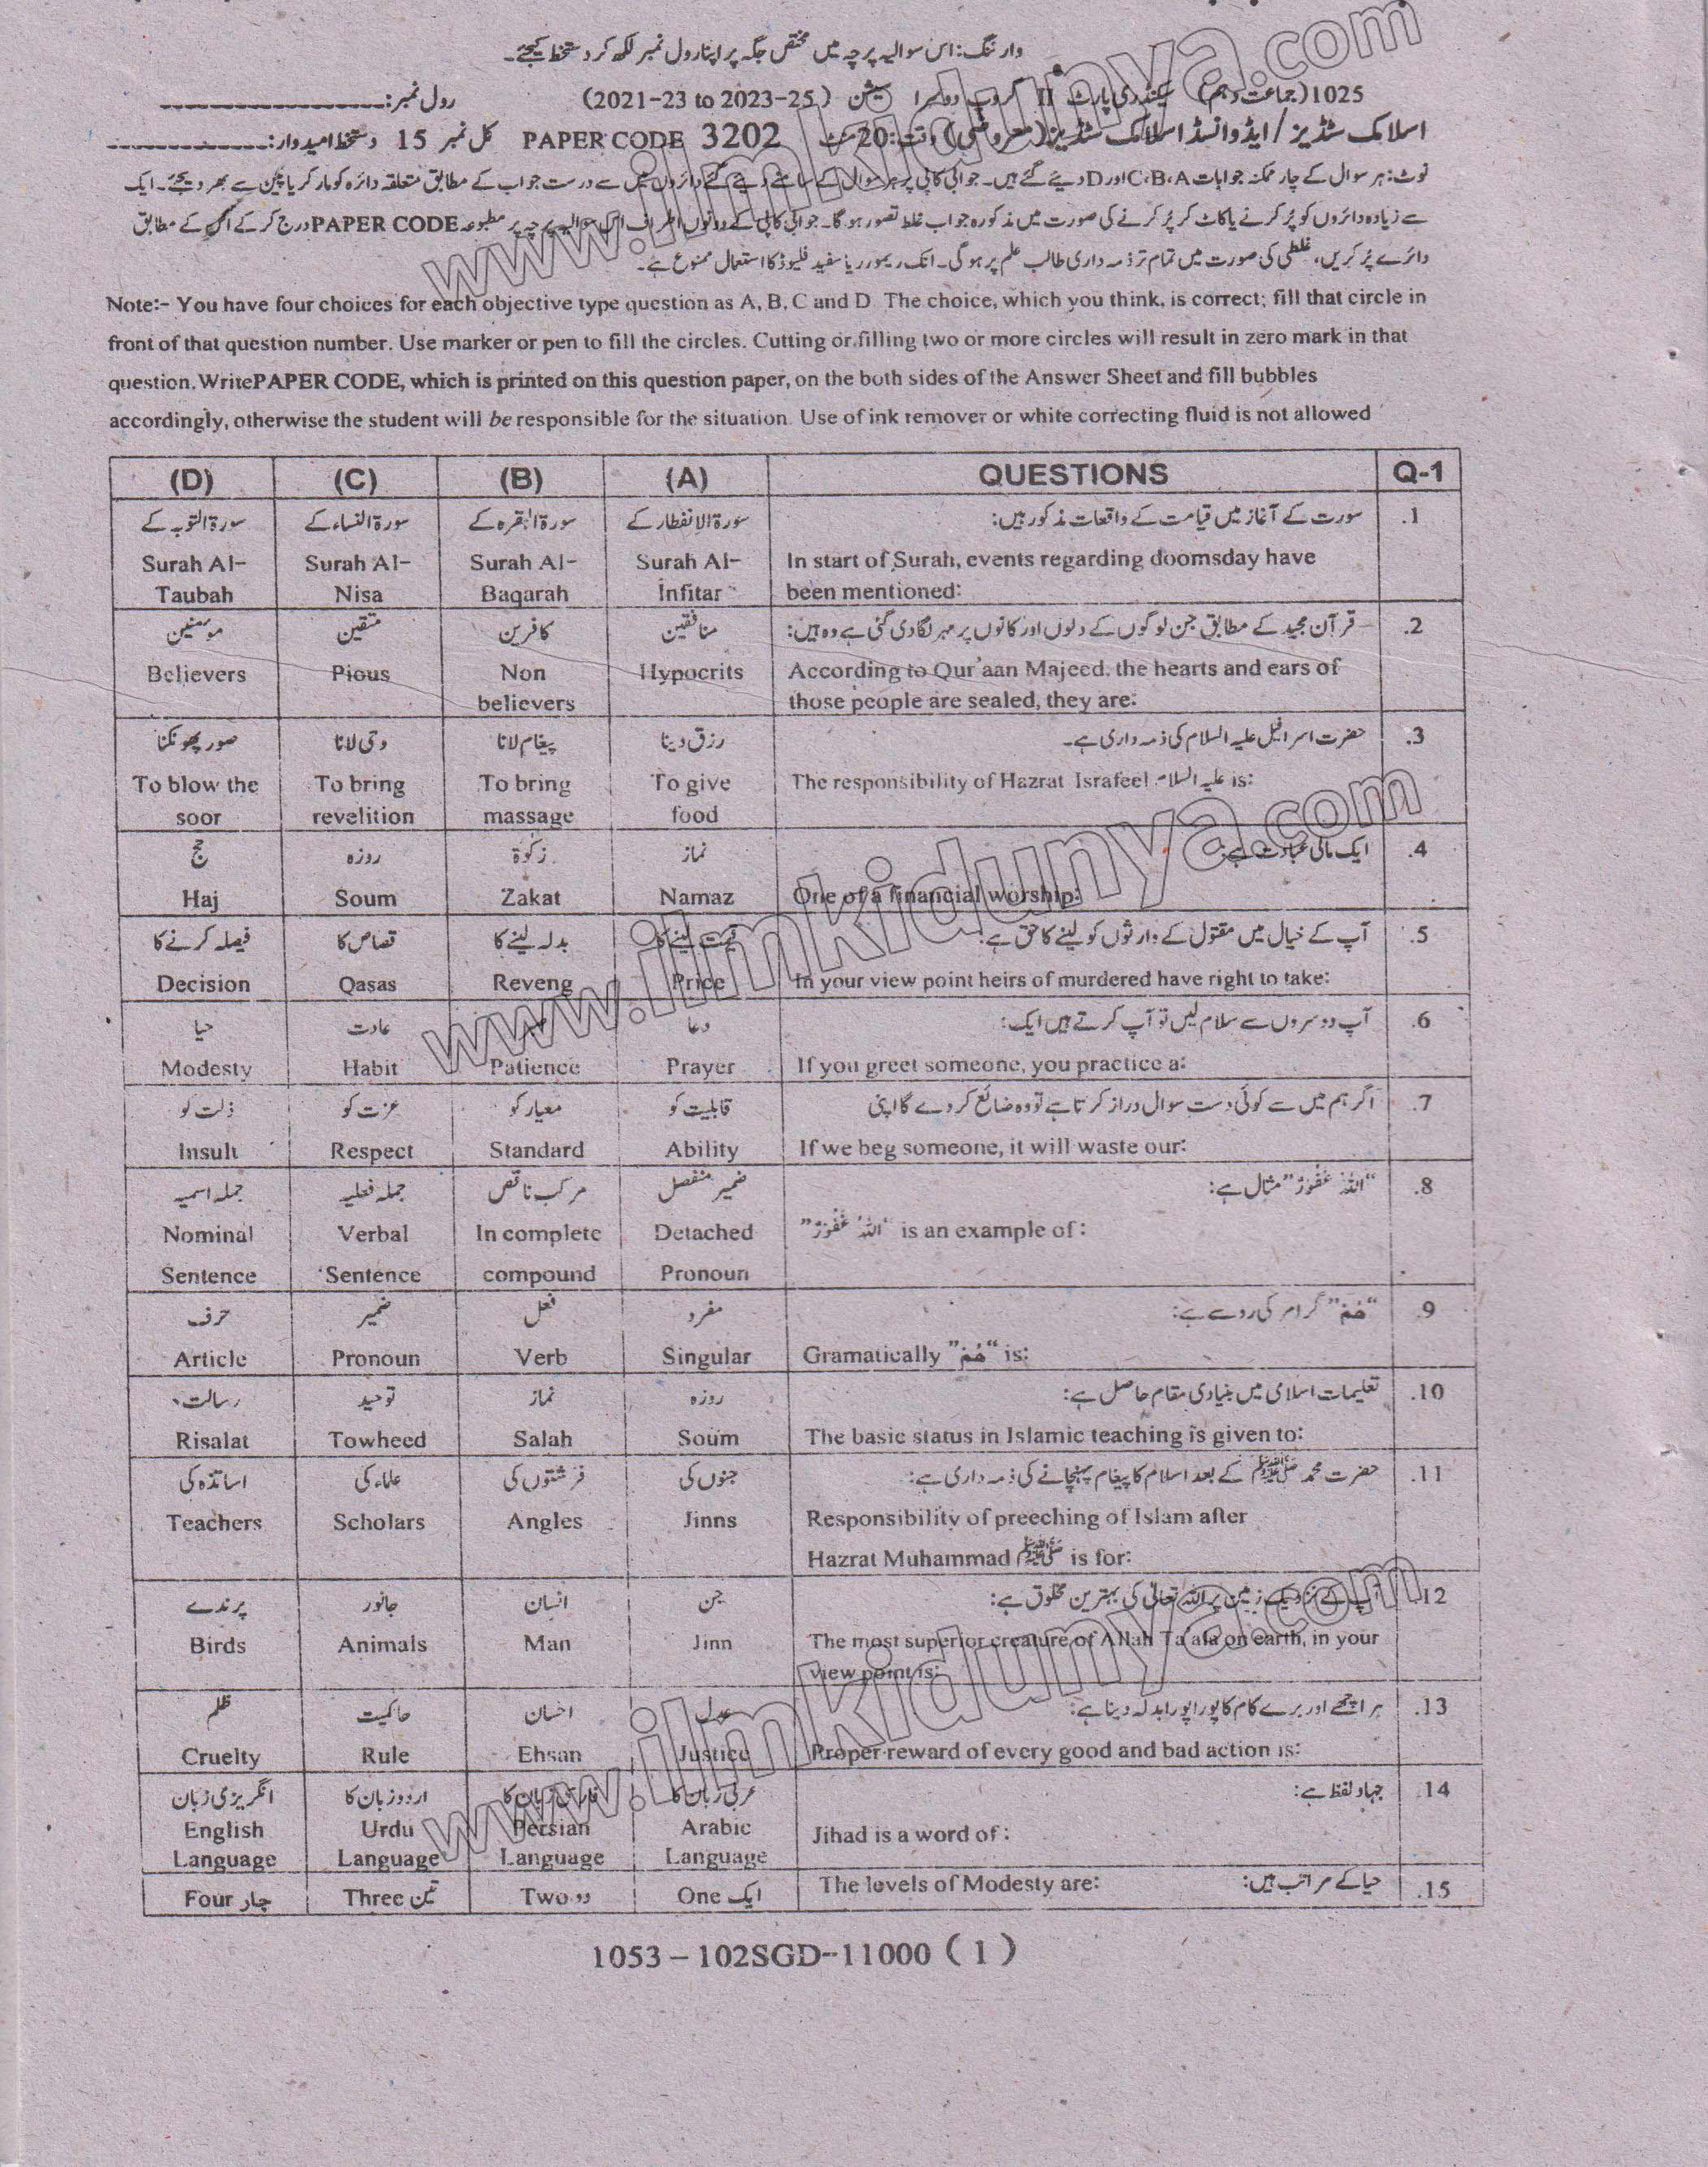 وارننگ: اس سوالیہ پرچہ میں مختص جگہ پر اپنا رول نمبر لکھ کر دستخط کیجئے۔
1025 (جماعت دہم) سیکنڈری پارٹ II گروپ دوسرا سیشن (2021-23 to 2023-25) رول نمبر:
اسلامک سٹڈیز / ایڈوانسڈ اسلامک سٹڈیز (معروضی) وقت: 20 منٹ PAPER CODE 3202 کل نمبر 15 دستخط امیدوار:
نوٹ: ہر سوال کے چار ممکنہ جوابات C،B،A اور D دیئے گئے ہیں۔ جوابی کاپی پر ہر سوال کے سامنے دیئے گئے دائروں میں سے درست جواب کے مطابق متعلقہ دائرہ کو مارکر یا پین سے بھر دیجئے۔ ایک
سے زیادہ دائروں کو پُر کرنے یا کاٹ کر پُر کرنے کی صورت میں مذکورہ جواب غلط تصور ہو گا۔ جوابی کاپی کے دونوں اطراف اس سوالیہ پرچہ پر مطبوعہ PAPER CODE درج کر کے اس کے مطابق
دائرے پُر کریں، غلطی کی صورت میں تمام تر ذمہ داری طالب علم پر ہوگی۔ انک ریموور یا سفید فلیوڈ کا استعمال ممنوع ہے۔
Note:- You have four choices for each objective type question as A, B, C and D. The choice, which you think, is correct; fill that circle in
front of that question number. Use marker or pen to fill the circles. Cutting or filling two or more circles will result in zero mark in that
question. WritePAPER CODE, which is printed on this question paper, on the both sides of the Answer Sheet and fill bubbles
accordingly, otherwise the student will be responsible for the situation. Use of ink remover or white correcting fluid is not allowed
(D) (C) (B) (A) QUESTIONS Q-1
سورۃ التوبہ کے سورۃ النساء کے سورۃ البقرہ کے سورۃ الانفطار کے سورت کے آغاز میں قیامت کے واقعات مذکور ہیں: .1
Surah Al- Surah Al- Surah Al- Surah Al- In start of Surah, events regarding doomsday have
Taubah Nisa Baqarah Infitar been mentioned:
مومنین متقین کافرین منافقین قرآن مجید کے مطابق جن لوگوں کے دلوں اور کانوں پر مہر لگا دی گئی ہے وہ ہیں: .2
Believers Pious Non Hypocrits According to Qur'aan Majeed. the hearts and ears of
believers those people are sealed, they are:
صور پھونکنا وحی لانا پیغام لانا رزق دینا حضرت اسرافیل علیہ السلام کی ذمہ داری ہے۔ .3
To blow the To bring To bring To give The responsibility of Hazrat Israfeel علیہ السلام is:
soor revelition massage food
حج روزہ زکوٰۃ نماز ایک مالی عبادت ہے: .4
Haj Soum Zakat Namaz One of a financial worship:
فیصلہ کرنے کا قصاص کا بدلہ لینے کا قیمت لینے کا آپ کے خیال میں مقتول کے وارثوں کو لینے کا حق ہے: .5
Decision Qasas Reveng Price In your view point heirs of murdered have right to take:
حیا عادت صبر دعا آپ دوسروں سے سلام لیں تو آپ کرتے ہیں ایک: .6
Modesty Habit Patience Prayer If you greet someone, you practice a:
ذلت کو عزت کو معیار کو قابلیت کو اگر ہم میں سے کوئی دست سوال دراز کرتا ہے تو وہ ضائع کر دے گا اپنی .7
Insult Respect Standard Ability If we beg someone, it will waste our:
جملہ اسمیہ جملہ فعلیہ مرکب ناقص ضمیر منفصل "اَللّٰہُ غَفُوْرٌ" مثال ہے: .8
Nominal Verbal In complete Detached "اَللّٰہُ غَفُوْرٌ" is an example of :
Sentence Sentence compound Pronoun
حرف ضمیر فعل مفرد "ھُمْ" گرامر کی رو سے ہے: .9
Article Pronoun Verb Singular Gramatically "ھُمْ" is:
رسالت توحید نماز روزہ تعلیمات اسلامی میں بنیادی مقام حاصل ہے: .10
Risalat Towheed Salah Soum The basic status in Islamic teaching is given to:
اساتذہ کی علماء کی فرشتوں کی جنوں کی حضرت محمد ﷺ کے بعد اسلام کا پیغام پہنچانے کی ذمہ داری ہے: .11
Teachers Scholars Angles Jinns Responsibility of preeching of Islam after
Hazrat Muhammad ﷺ is for:
پرندے جانور انسان جن آپ کے نزدیک زمین پر اللہ تعالیٰ کی بہترین مخلوق ہے: .12
Birds Animals Man Jinn The most superior creature of Allah Ta'ala on earth, in your
view point is:
ظلم حاکمیت احسان عدل ہر اچھے اور برے کام کا پورا پورا بدلہ دینا ہے: .13
Cruelty Rule Ehsan Justice Proper reward of every good and bad action is:
انگریزی زبان اردو زبان کا فارسی زبان کا عربی زبان کا جہاد لفظ ہے: .14
English Urdu Persian Arabic Jihad is a word of :
Language Language Language Language
Four چار Three تین Two دو One ایک The levels of Modesty are: حیا کے مراتب ہیں: .15
1053 – 102SGD--11000 ( 1 )
www.ilmkidunya.com
www.ilmkidunya.com
www.ilmkidunya.com